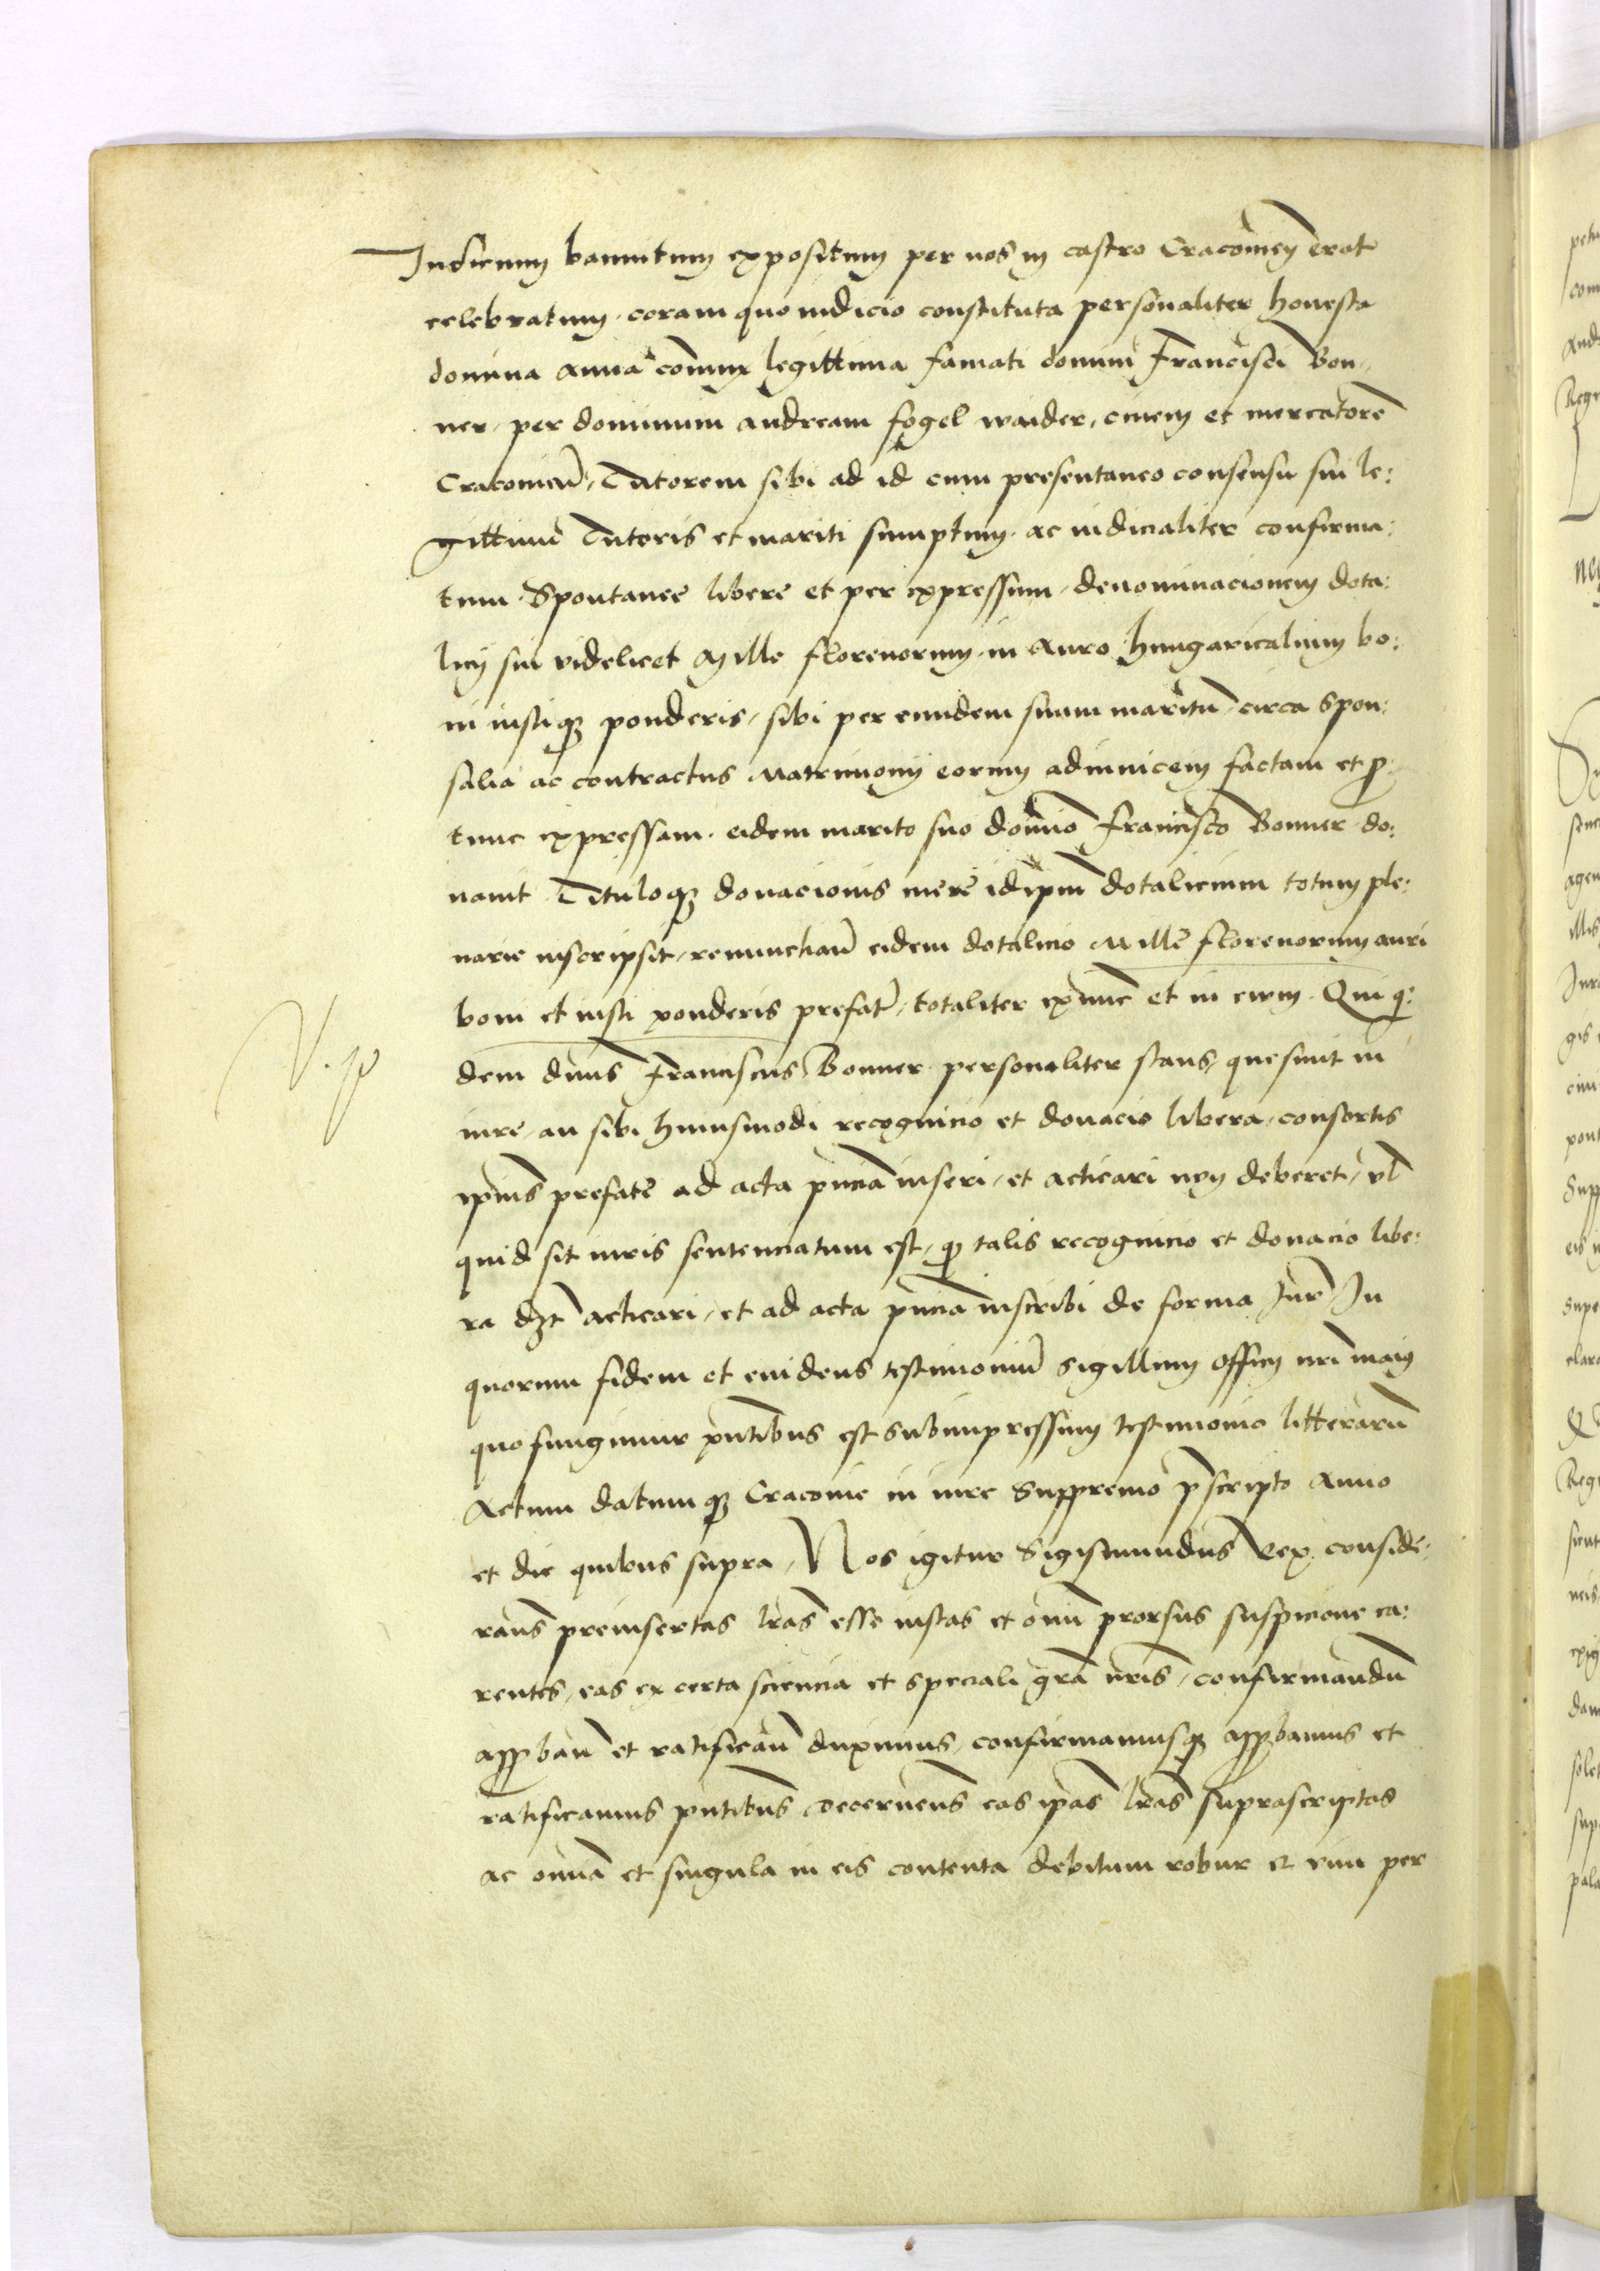 Judicium bannitum expositum per nos in castro Cracoviens erat
celebratum. coram quo iudicio constituta personaliter honesta
domina anna coniunx legittima famati domini Francisci Bon-
ner, per dominum andream fogel waider, civem et mercatorē
Cracovieñ, Tutorem sibi ad id cum presentaneo consensu sui le:
gittimi Tutoris et mariti sumptum. ac iudicialiter confirma:
tum. Spontanee libere et per expressum, denominacionem dota:
licij sui videlicet Mille florenorum. in Auro hungaricalium bo:
ni iustiqꝫ ponderis, sibi per eundem suum maritū, circa spon:
salia ac contractus Matrimonij eorum adinuicem factam et ꝓ
tunc expressam. eidem marito suo domino Francisco Bonner do:
nauit Tituloqꝫ donacionis mere id ipm̄ dotalicium totum ple:
narie inscripsit, renunctiañ eidem dotalicio Mille florenorum auri
boni et iusti ponderis prefat, totaliter exnunc et in evum. Qui q:
dem dn̄us Franciscus Bonner personaliter stans, quesiuit in
iure, an sibi huiusmodi recognicio et donacio libera, consortis
ipius prefate ad acta pn̄cia inseri, et acticari non deberet, vl
quid sit iuris sentenciatum est, qꝫ talis recognicio et donacio libe:
ra dꝫt acticari, et ad acta pn̄cia inscribi de forma Jur̄ In
quorum fidem et euidens testimoniū sigillum officij nr̄i maius
quo fungimur pn̄tibus est subimpressum testimonio litterarū
Actum datumqꝫ Cracovie in iure Suppremo p̄scripto Anno
et die quibus supra, Nos igitur Sigismundus Rex conside:
rans preinsertas lr̄as esse iustas et om̄i prorsus suspicione ca:
rentes, eas ex certa sciencia et speciali gr̄a nr̄is, confirmandū
apꝓbañ et ratificañ duximus, confirmamusqꝫ apꝓbamus et
ratificamus pn̄tibus decernens eas ipas lr̄as suprascriptas
ac om̄ia et singula in eis contenta debitum robur et vim per